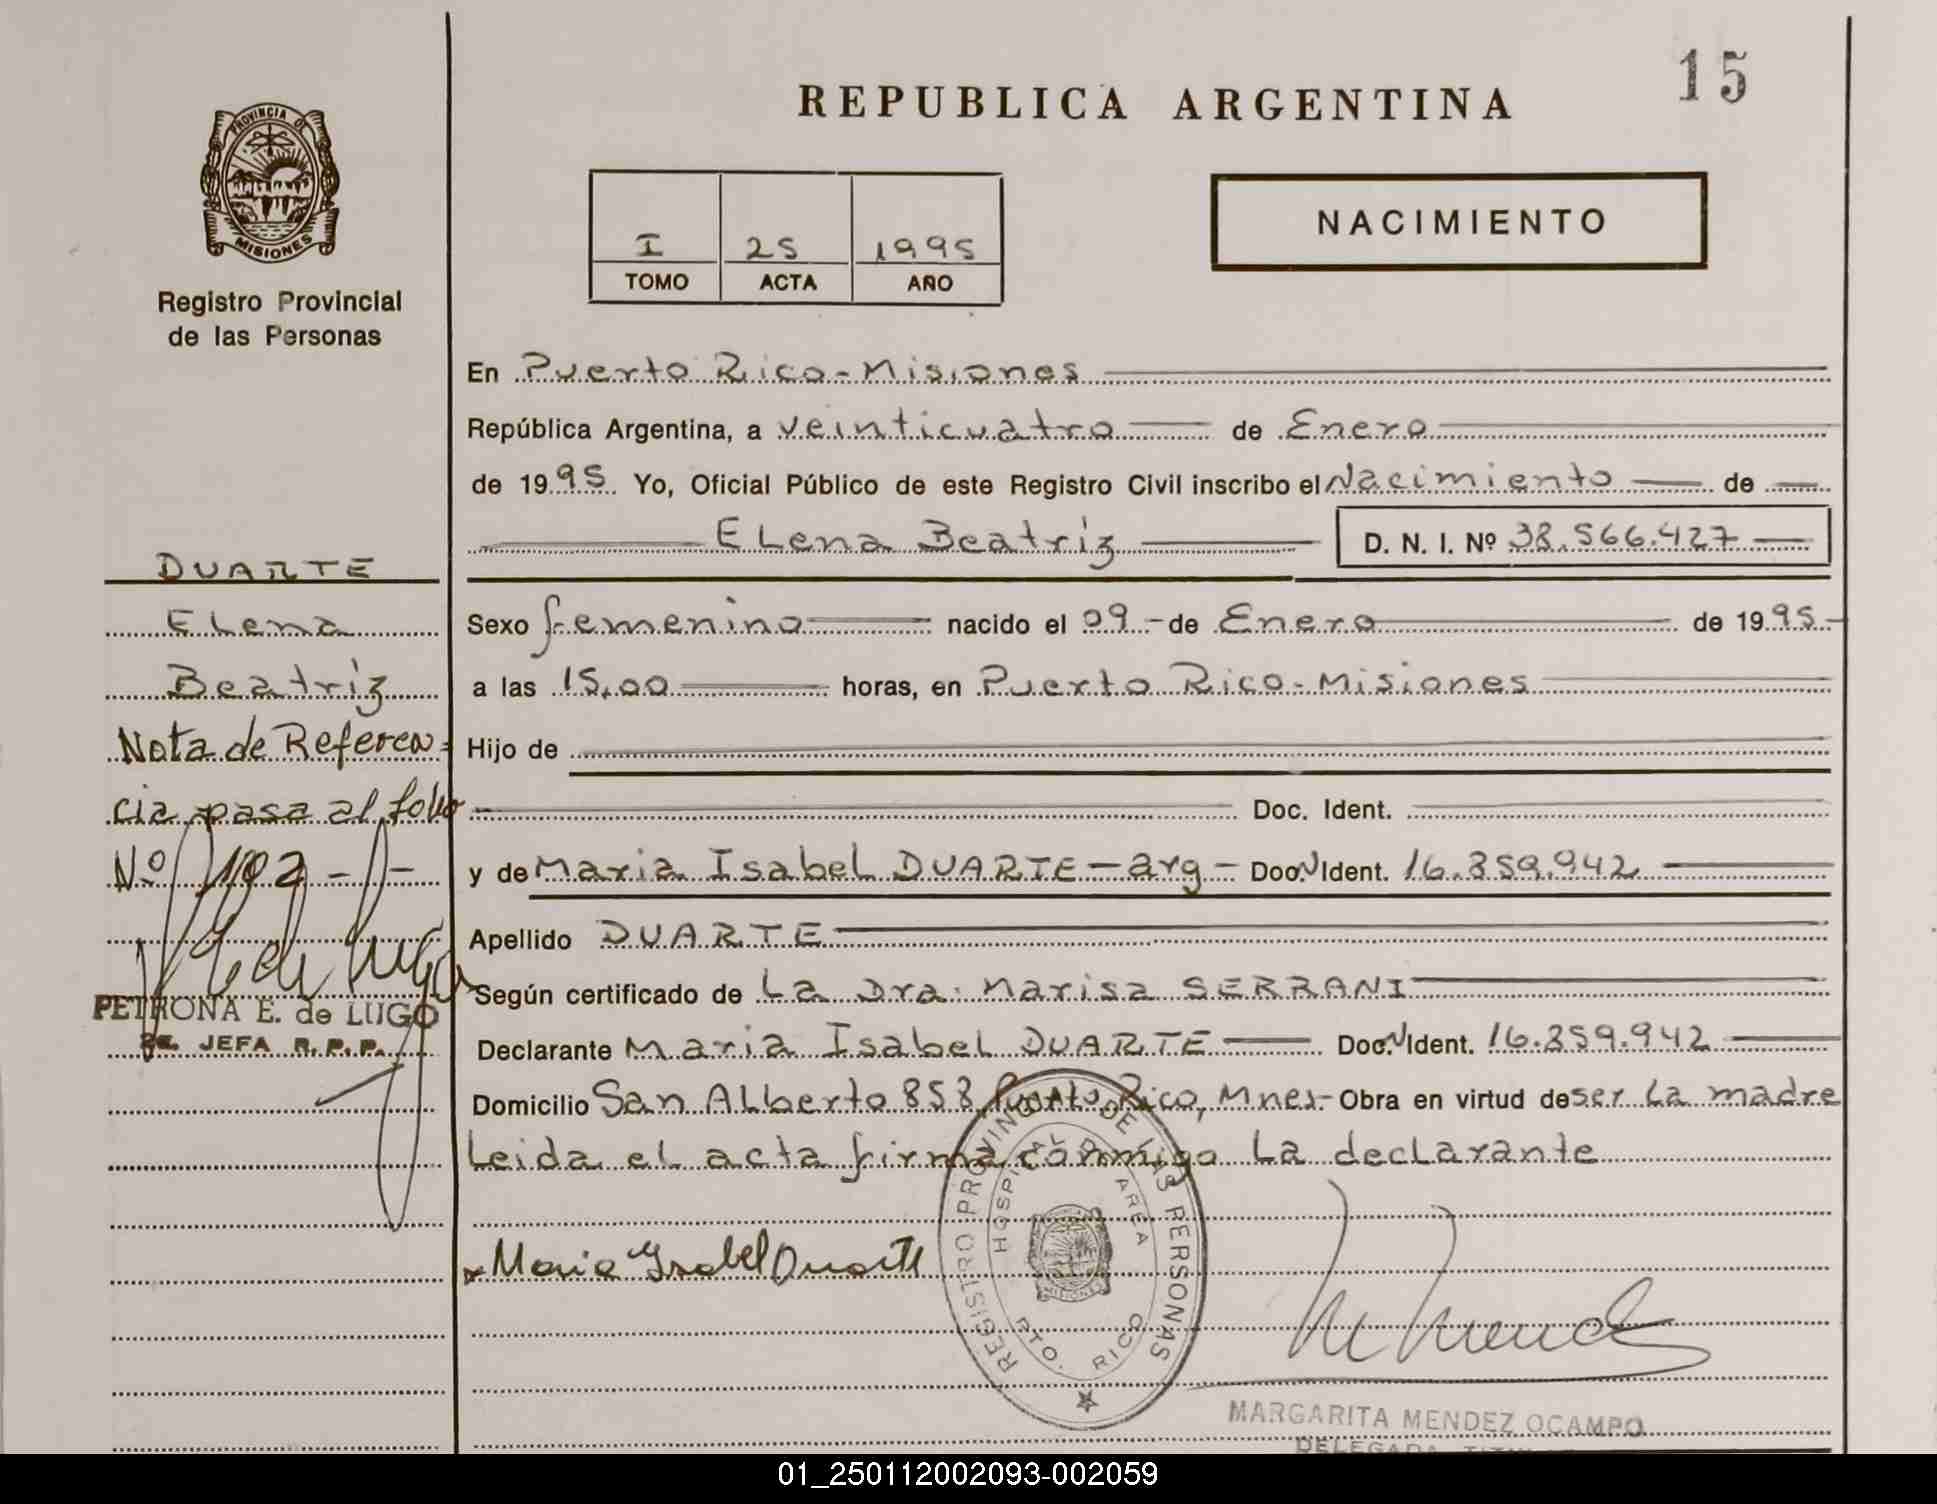 15
REPUBLICA ARGENTINA
PROVINCIA DE
MISIONES
Registro Provincial
de las Personas
I 25 1995
TOMO ACTA AÑO
NACIMIENTO
En Puerto Rico-Misiones
República Argentina, a veinticuatro de Enero
de 1995 Yo, Oficial Público de este Registro Civil inscribo el Nacimiento de
Elena Beatriz D. N. I. Nº 38.566.427
Sexo femenino nacido el 09 - de Enero de 1995-
a las 15,00 horas, en Puerto Rico-Misiones
Hijo de
Doc. Ident.
y de Maria Isabel DUARTE - arg - Doc. Ident. 16.859.942
Apellido DUARTE
Según certificado de La Dra. Marisa SERRANI
Declarante Maria Isabel DUARTE Doc. Ident. 16.859.942
Domicilio San Alberto 858, Puerto Rico, Mnes- Obra en virtud de ser la madre
Leida el acta firma conmigo La declarante
Maria Ysabel Duarte
DUARTE
Elena
Beatriz
Nota de Referen=
cia pasa al folio
Nº 102 -
PETRONA E. de LUGO
JEFA R.P.P.
REGISTRO PROVINCIAL DE LAS PERSONAS
HOSPITAL DE AREA
PTO. RICO
MISIONES
MARGARITA MENDEZ OCAMPO
DELEGADA
01_250112002093-002059